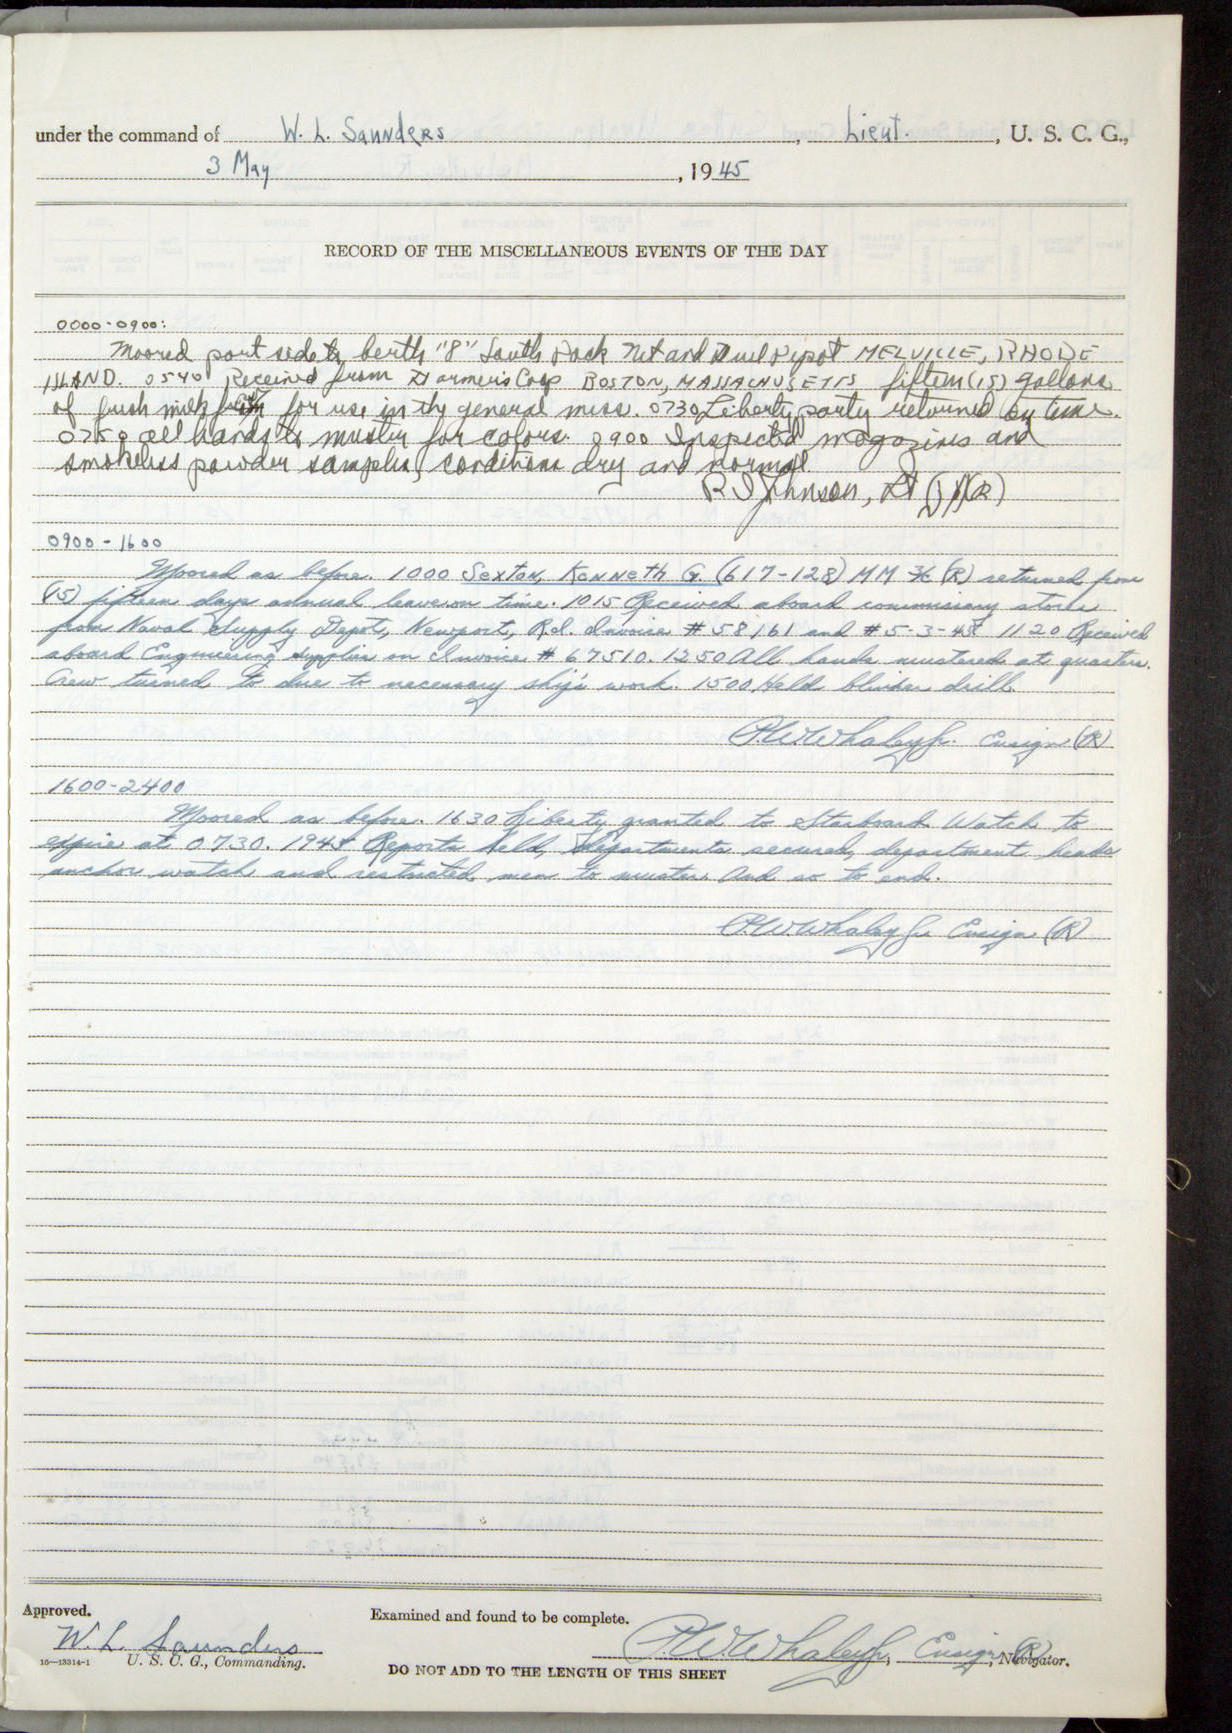 under the command of W. L. Saunders, Lieut., U. S. C. G.,
3 May, 1945
RECORD OF THE MISCELLANEOUS EVENTS OF THE DAY
0000-0900:
Moored port side to, berth "8" South Dock Net and Fuel Depot MELVILLE, RHODE
ISLAND. 0540 Received from Farmers Coop BOSTON, MASSACHUSETTS fifteen (15) gallons
of fresh milk for use in the general mess. 0730 Liberty party returned on time.
0750 all hands to muster for colors. 0900 Inspected magazines and
smokeless powder samples, conditions dry and normal
R I Johnson, Lt (jg)(R)
0900-1600
Moored as before. 1000 Sexton, Kenneth G. (617-128) MM 3/c (R) returned from
(15) fifteen days annual leave on time. 1015 Received aboard commissary stores
from Naval Supply Depot, Newport, R.I. Invoice #58161 and #5-3-45 1120 Received
aboard Engineering supplies on Invoice #67510. 1250 All hands mustered at quarters.
Crew turned to due to necessary ship's work. 1500 Held blinker drill.
P.W. Whaley Jr. Ensign (R)
1600-2400
Moored as before. 1630 Liberty granted to Starboard Watch to
expire at 0730. 1945 Reports held, departments secured, department heads
anchor watch and restricted men to muster. And so to end.
P.W. Whaley Jr Ensign (R)
Approved.
Examined and found to be complete.
W. L. Saunders
P.W. Whaley Jr, Ensign (R), Navigator.
16—13314-1 U. S. C. G., Commanding.
DO NOT ADD TO THE LENGTH OF THIS SHEET